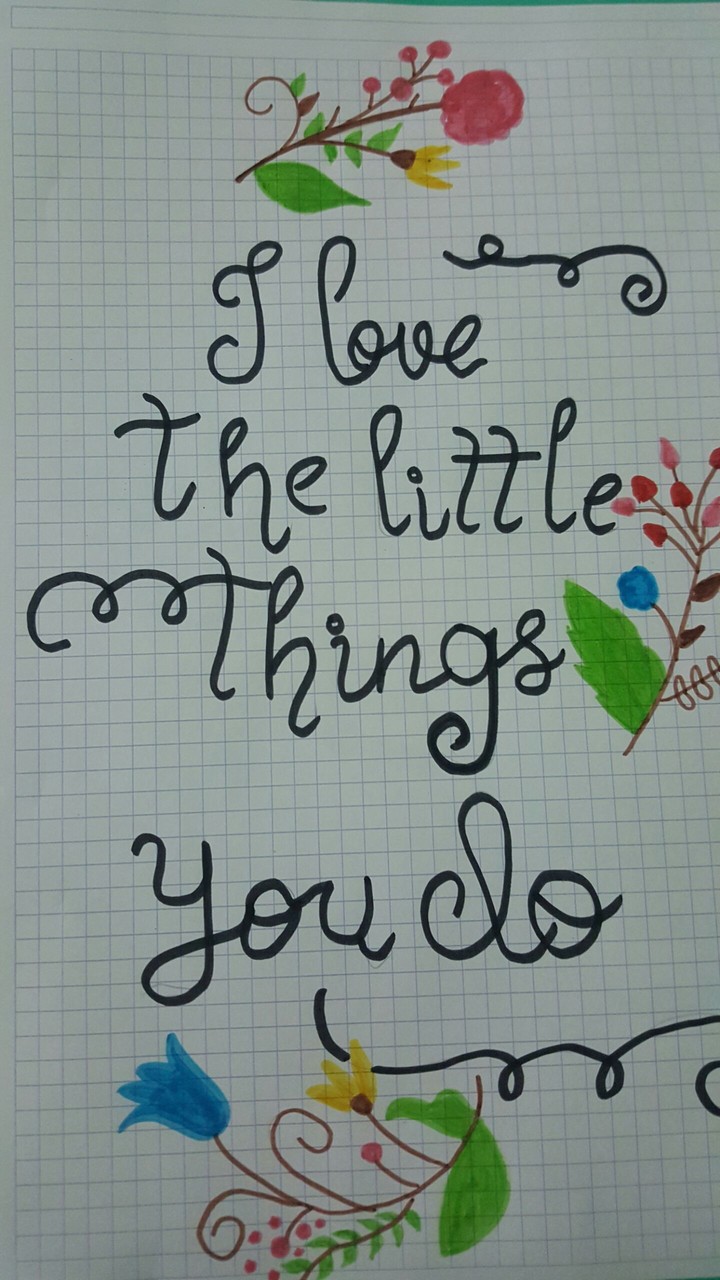 I love
The little
Things
you do